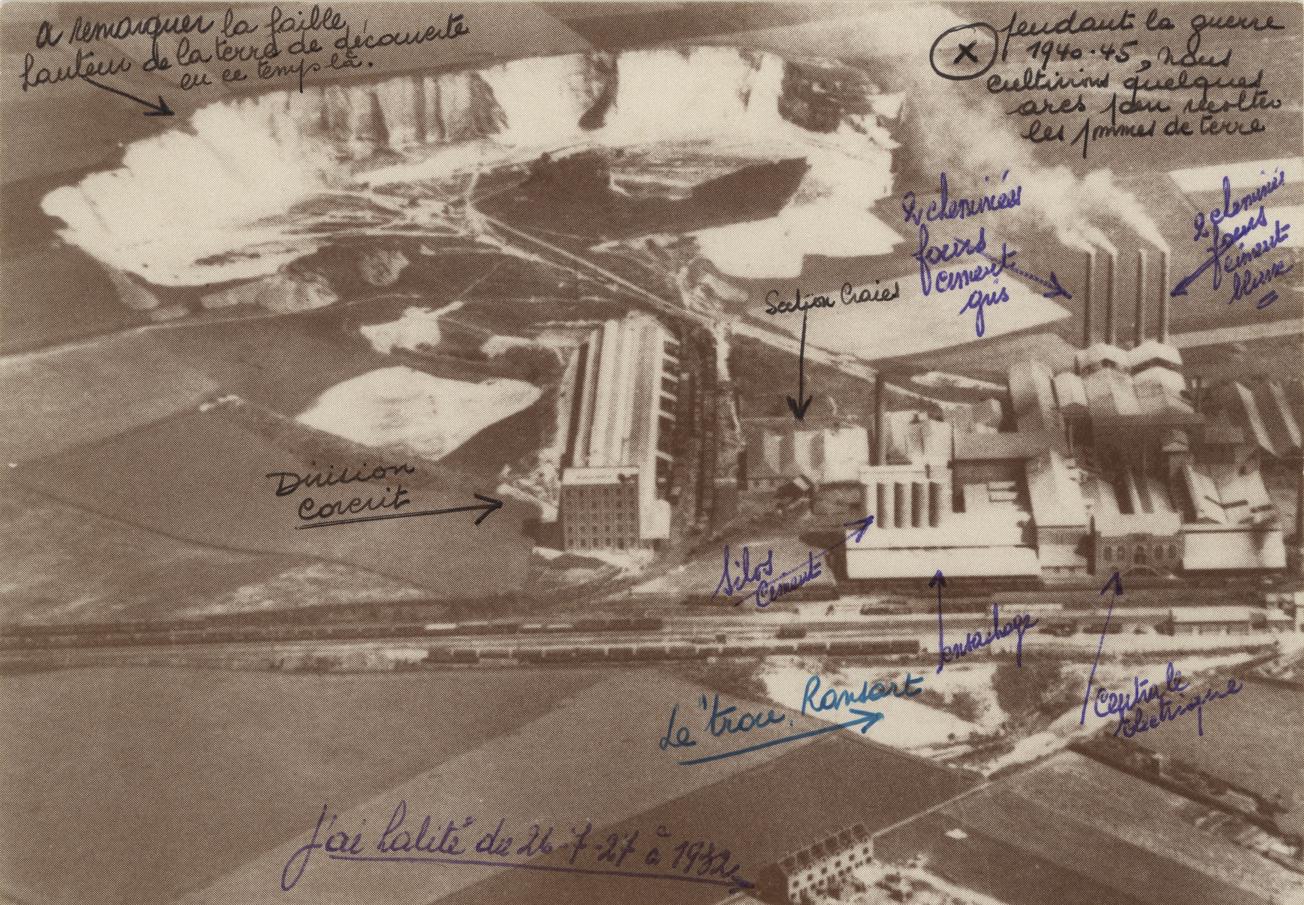 a remarquer la faille
hauteur de la terre de découverte
en ce temps là.
X
pendant la guerre
1940-45, nous
cultivions quelques
ares pour récolter
les pommes de terre
2 cheminées
fours
ciment
gris
2 cheminées
fours
ciment
blanc
Section Craies
Division
Corcrit
Silos
Ciment
ensachage
Centrale
électrique
Le "trou, Ransart
J'ai habité du 26-7-27 à 1932